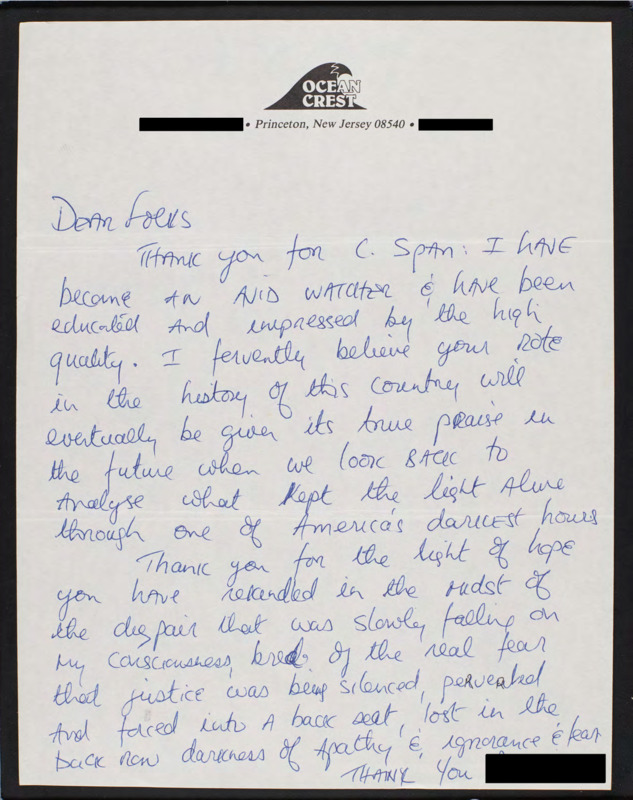 OCEAN
CREST
• Princeton, New Jersey 08540 •
Dear Folks
Thank you for C. Span: I have
become an avid watcher & have been
educated and impressed by the high
quality. I fervently believe your role
in the history of this country will
eventually be given its true praise in
the future when we look back to
Analyse what kept the light alive
through one of America's darkest hours
Thank you for the light of hope
you have rekindled in the midst of
the despair that was slowly falling on
my consciousness, bred of the real fear
that justice was being silenced,
And forced into a back seat, lost in the
back row darkness of Apathy & ignorance & fear
Thank You